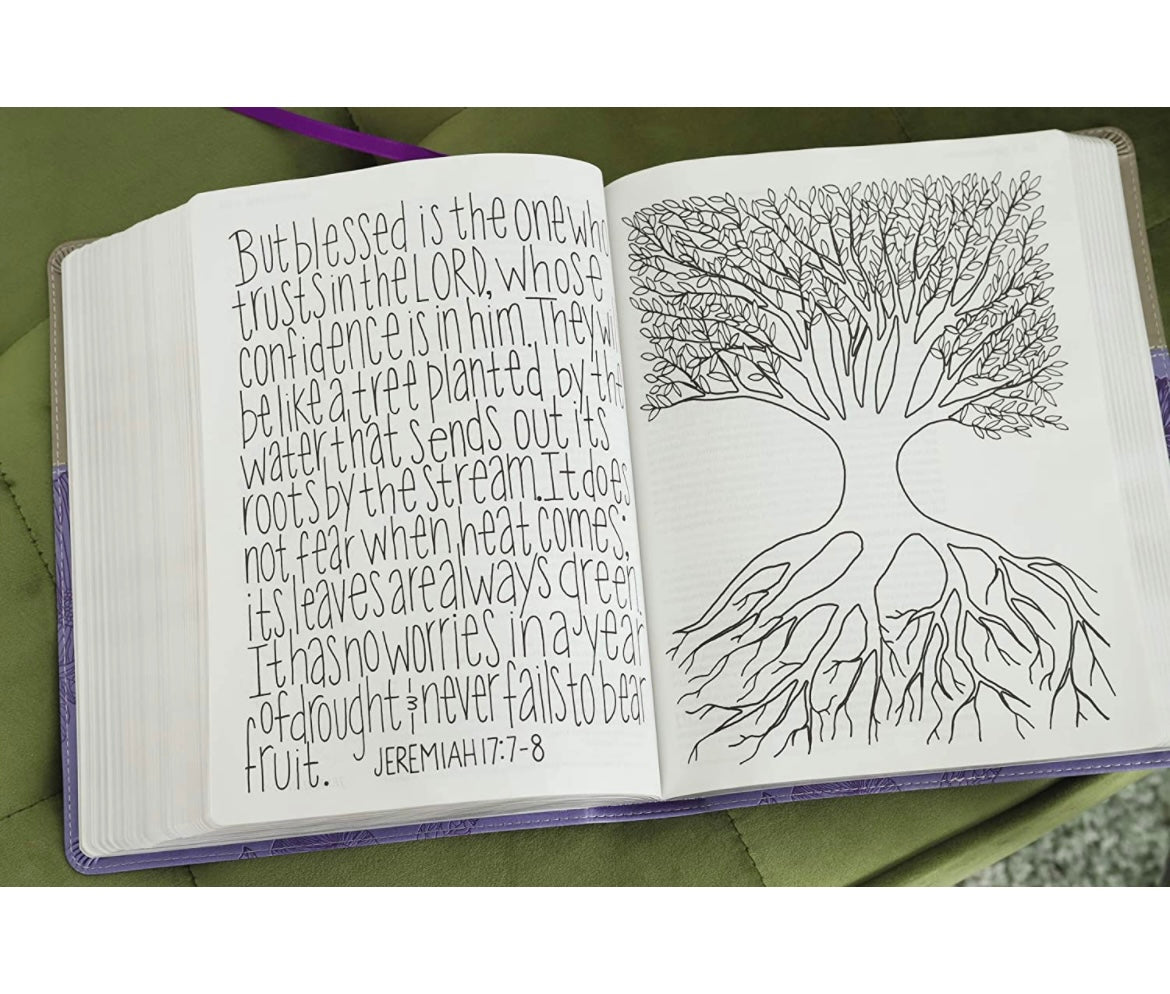 But blessed is the one who
trusts in the LORD, whose
confidence is in him. They wi
be like a tree planted by the
water that sends out its
roots by the stream. It does
not fear when heat comes;
its leaves are always green.
It has no worries in a year
of drought & never fails to bear
fruit.
JEREMIAH 17:7-8